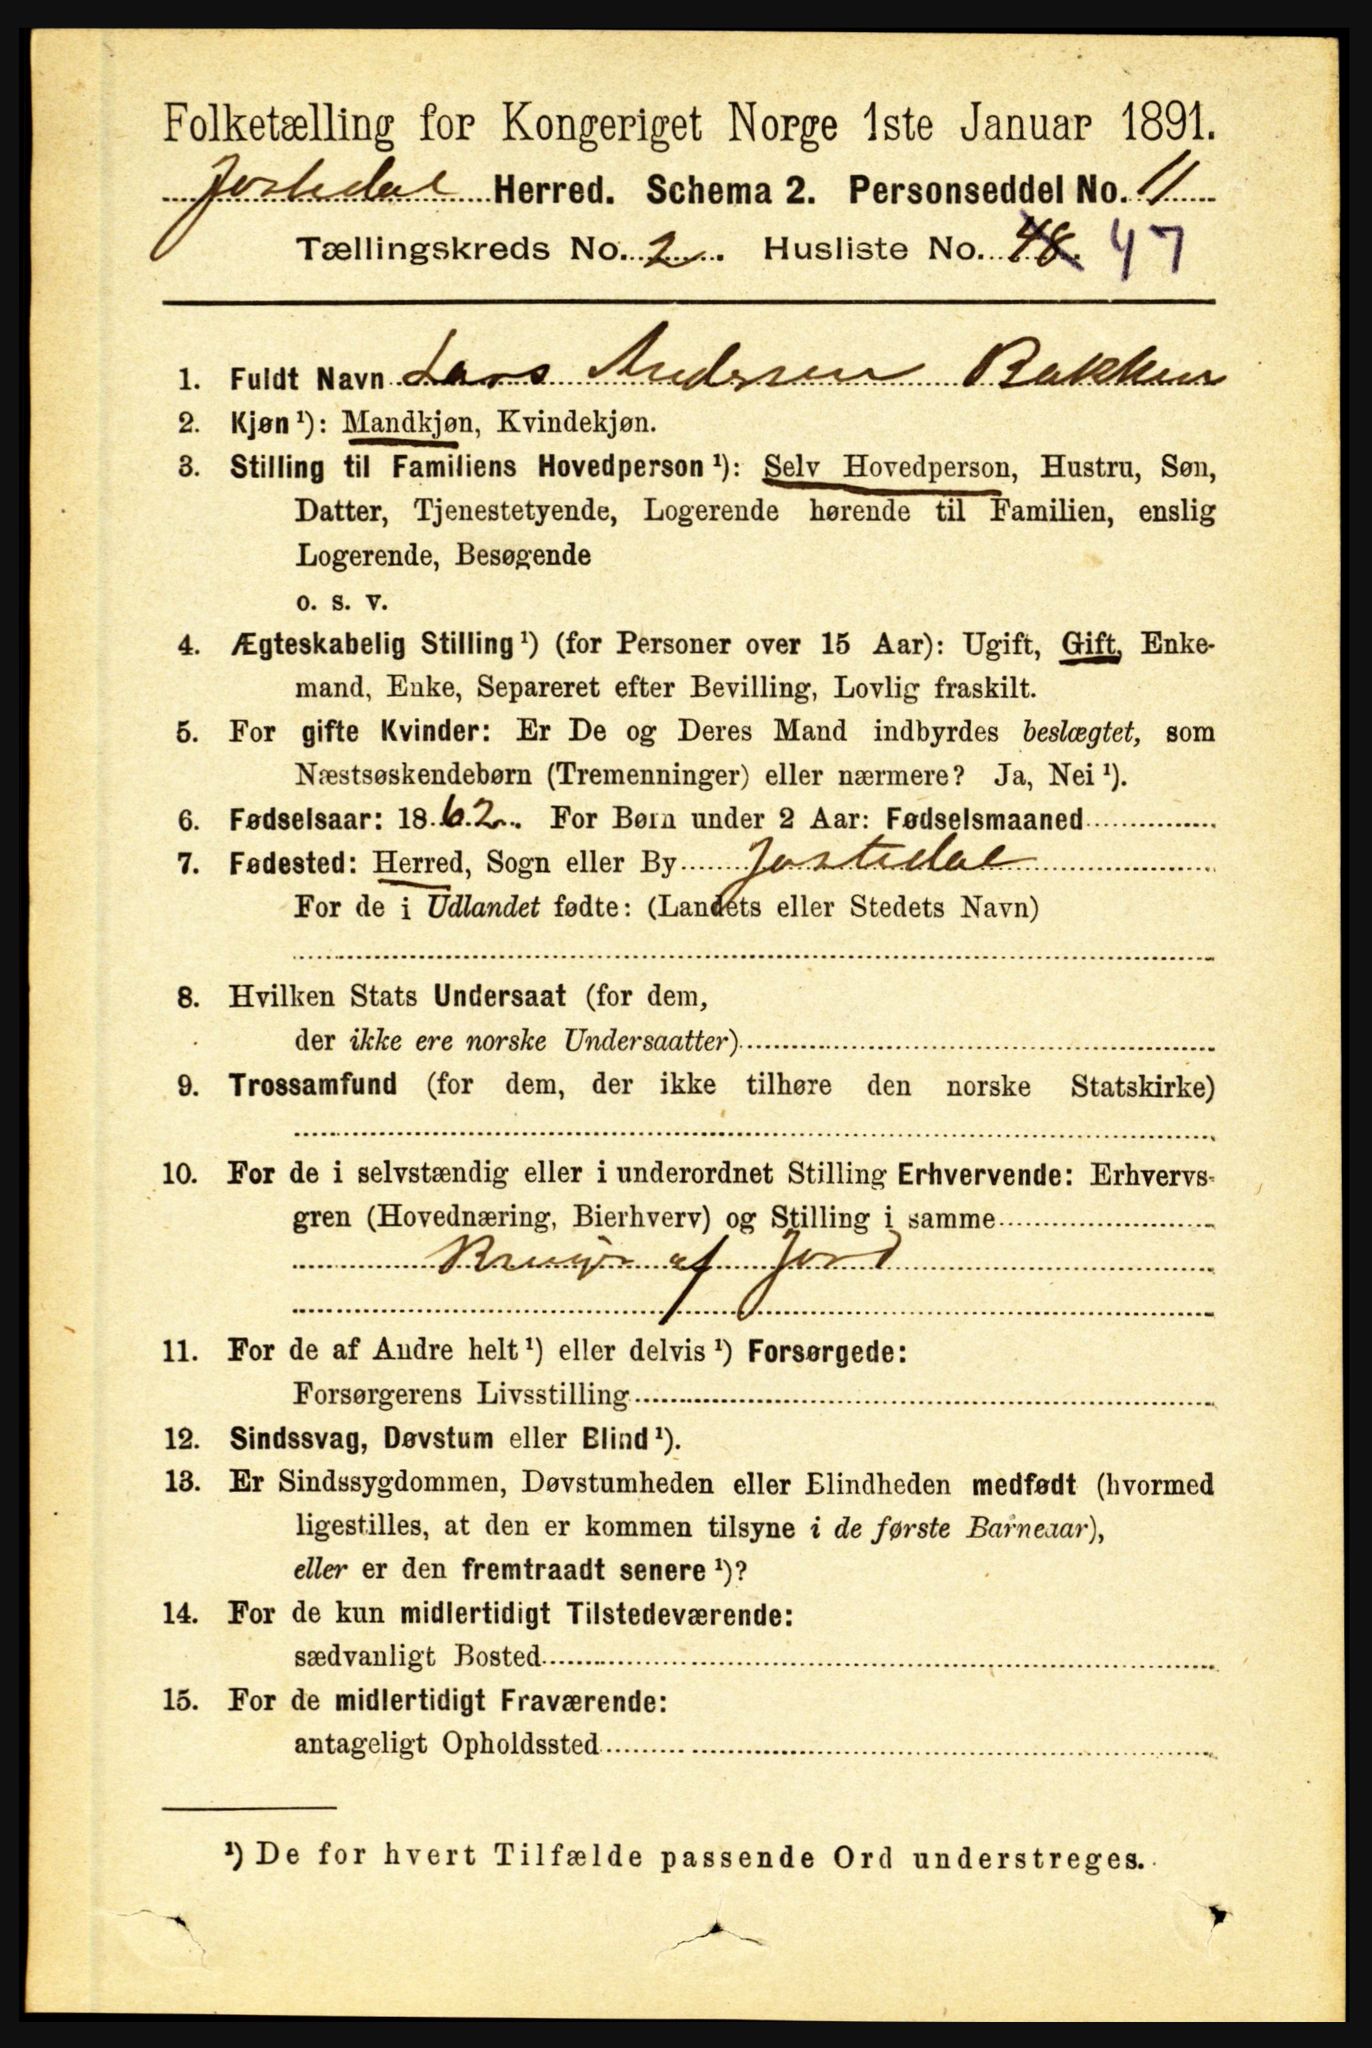 Folketælling for Kongeriget Norge 1ste Januar 1891.
Jostedal Herred. Schema 2. Personseddel No. 11
Tællingskreds No. 2. Husliste No. 48. 47
1. Fuldt Navn Lars Andersen Bakken
2. Kjøn¹): Mandkjøn, Kvindekjøn.
3. Stilling til Familiens Hovedperson¹): Selv Hovedperson, Hustru, Søn,
Datter, Tjenestetyende, Logerende hørende til Familien, enslig
Logerende, Besøgende
o. s. v.
4. Ægteskabelig Stilling¹) (for Personer over 15 Aar): Ugift, Gift, Enke-
mand, Enke, Separeret efter Bevilling, Lovlig fraskilt.
5. For gifte Kvinder: Er De og Deres Mand indbyrdes beslægtet, som
Næstsøskendebørn (Tremenninger) eller nærmere? Ja, Nei¹).
6. Fødselsaar: 1862. For Børn under 2 Aar: Fødselsmaaned
7. Fødested: Herred, Sogn eller By Jostedal
For de i Udlandet fødte: (Landets eller Stedets Navn)
8. Hvilken Stats Undersaat (for dem,
der ikke ere norske Undersaatter)
9. Trossamfund (for dem, der ikke tilhøre den norske Statskirke)
10. For de i selvstændig eller i underordnet Stilling Erhvervende: Erhvervs-
gren (Hovednæring, Bierhverv) og Stilling i samme
Bruger af Jord
11. For de af Andre helt¹) eller delvis¹) Forsørgede:
Forsørgerens Livsstilling
12. Sindssvag, Døvstum eller Blind¹).
13. Er Sindssygdommen, Døvstumheden eller Blindheden medfødt (hvormed
ligestilles, at den er kommen tilsyne i de første Barneaar),
eller er den fremtraadt senere¹)?
14. For de kun midlertidigt Tilstedeværende:
sædvanligt Bosted
15. For de midlertidigt Fraværende:
antageligt Opholdssted
¹) De for hvert Tilfælde passende Ord understreges.